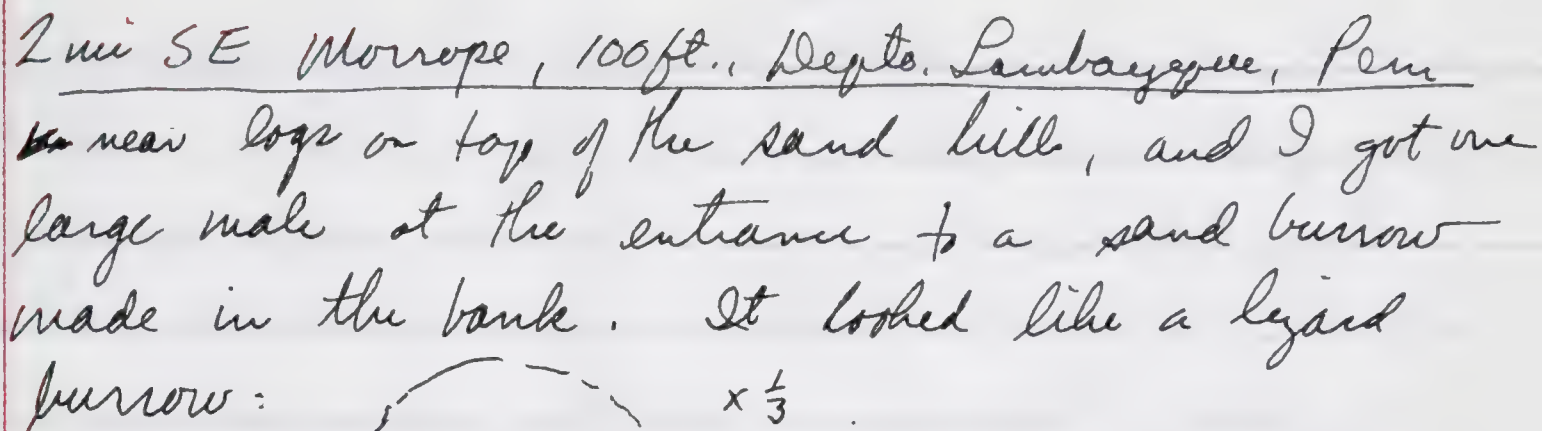 2 mi SE Morrope, 100ft., Depto. Lambayeque, Peru
near logs on top of the sand hills, and I got one
large male at the entrance to a sand burrow
made in the bank. It looked like a lizard
burrow: x 1/3